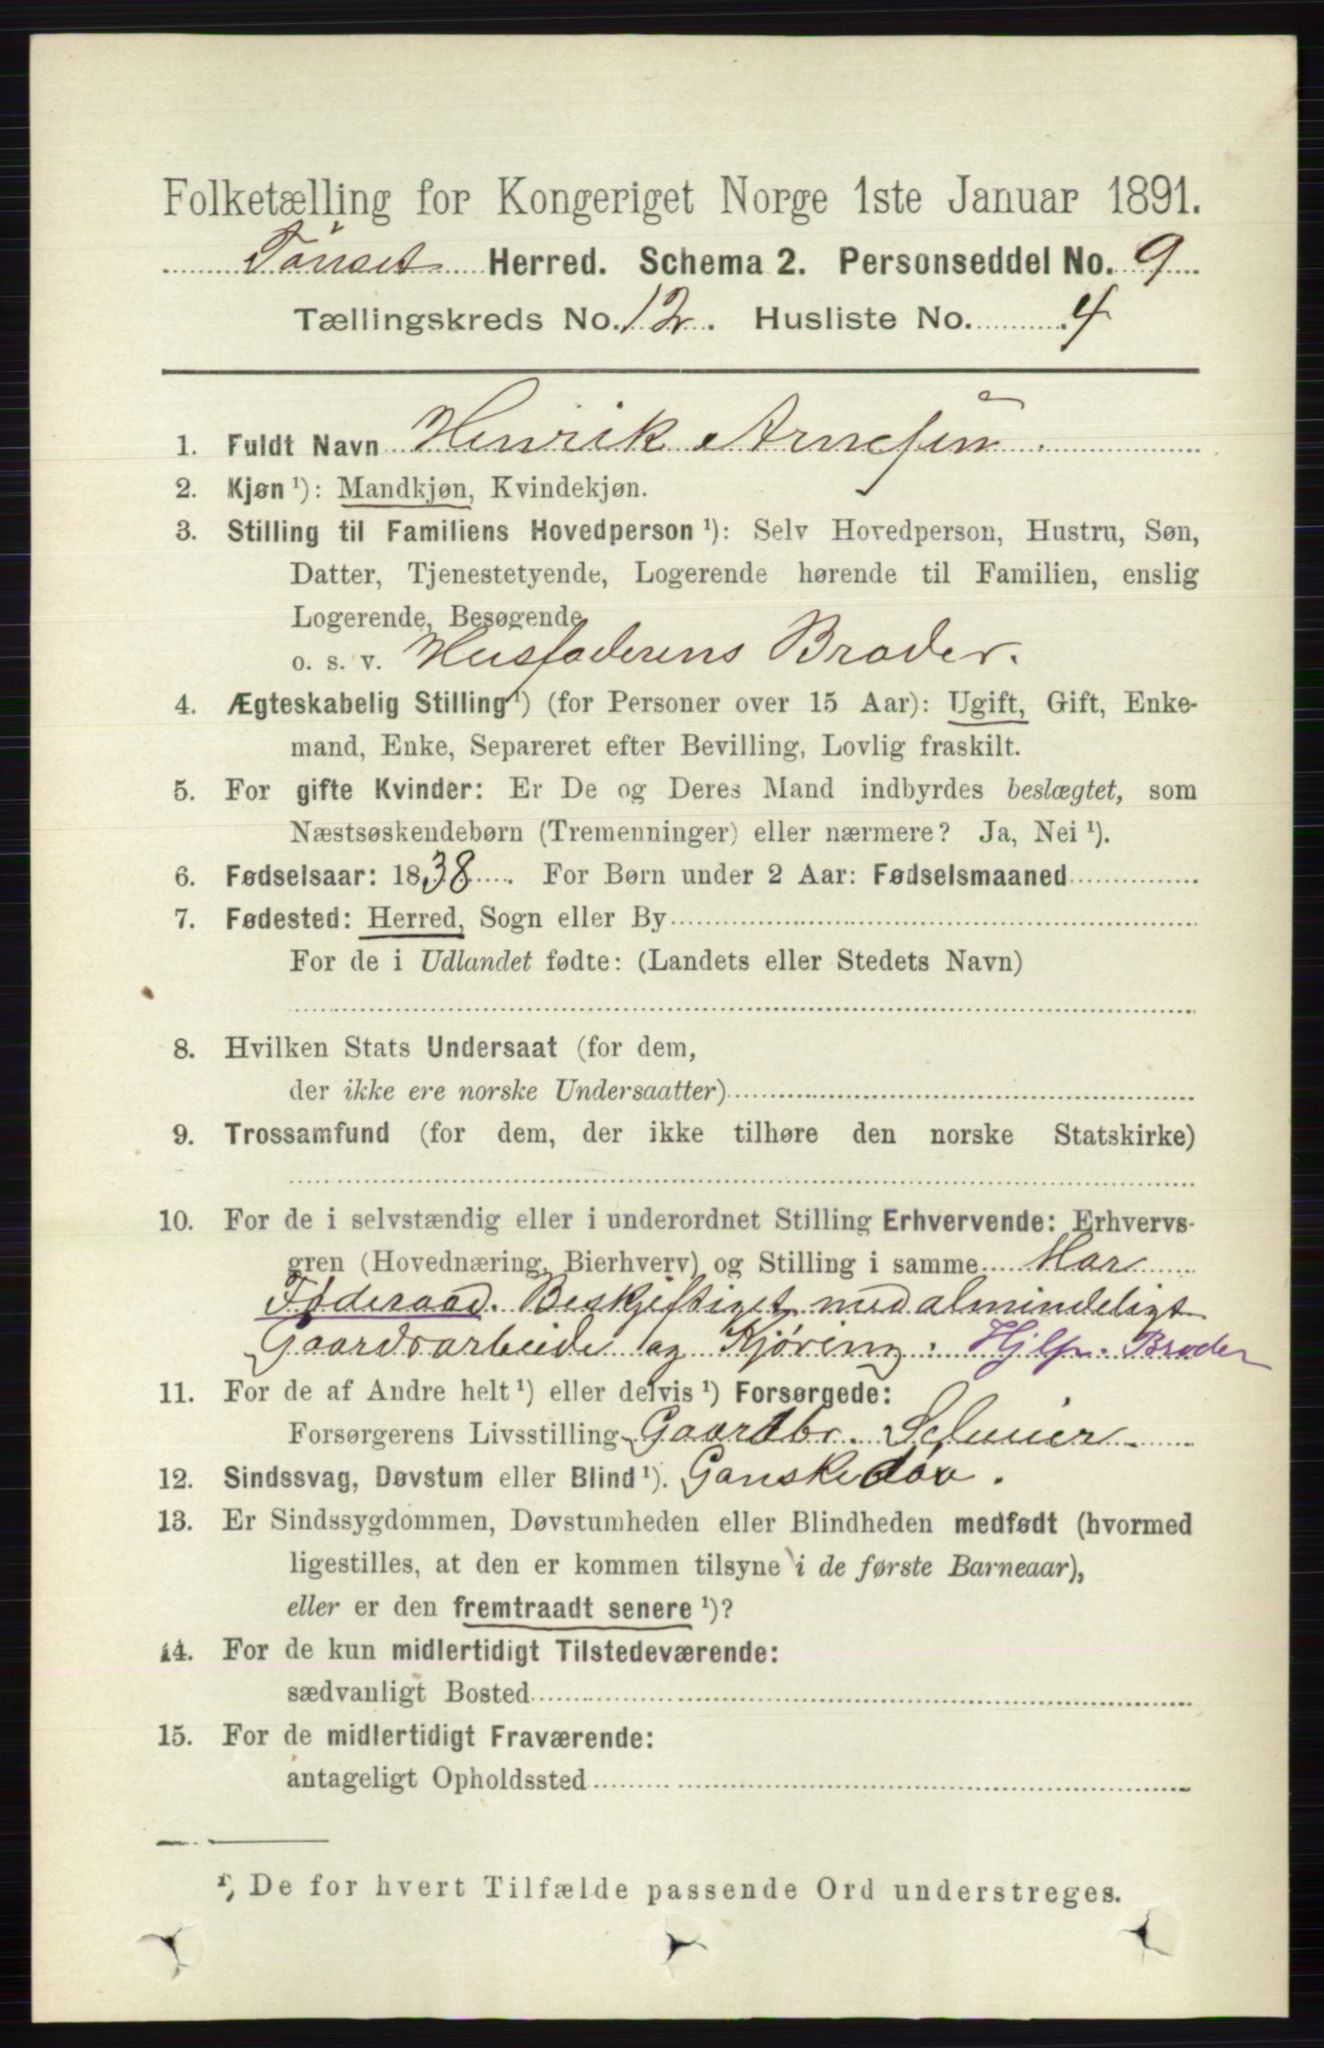 Folketælling for Kongeriget Norge 1ste Januar 1891.
Tønset Herred. Schema 2. Personseddel No. 9
Tællingskreds No. 12. Husliste No. 4
1. Fuldt Navn Henrik Arnesen
2. Kjøn ¹): Mandkjøn, Kvindekjøn.
3. Stilling til Familiens Hovedperson ¹): Selv Hovedperson, Hustru, Søn,
Datter, Tjenestetyende, Logerende hørende til Familien, enslig
Logerende, Besøgende
o. s. v. Husfaderens Broder.
4. Ægteskabelig Stilling ¹) (for Personer over 15 Aar): Ugift, Gift, Enke-
mand, Enke, Separeret efter Bevilling, Lovlig fraskilt.
5. For gifte Kvinder: Er De og Deres Mand indbyrdes beslægtet, som
Næstsøskendebørn (Tremenninger) eller nærmere? Ja, Nei ¹).
6. Fødselsaar: 1838. For Børn under 2 Aar: Fødselsmaaned
7. Fødested: Herred, Sogn eller By
For de i Udlandet fødte: (Landets eller Stedets Navn)
8. Hvilken Stats Undersaat (for dem,
der ikke ere norske Undersaatter)
9. Trossamfund (for dem, der ikke tilhøre den norske Statskirke)
10. For de i selvstændig eller i underordnet Stilling Erhvervende: Erhvervs-
gren (Hovednæring, Bierhverv) og Stilling i samme Har
Føderaad. Beskjeftiget med almindeligt
Gaardsarbeide og Kjøring. Hjlp. Broder
11. For de af Andre helt ¹) eller delvis ¹) Forsørgede:
Forsørgerens Livsstilling Gaardbr. Seluier
12. Sindssvag, Døvstum eller Blind ¹). Ganske døv.
13. Er Sindssygdommen, Døvstumheden eller Blindheden medfødt (hvormed
ligestilles, at den er kommen tilsyne i de første Barneaar),
eller er den fremtraadt senere ¹)?
14. For de kun midlertidigt Tilstedeværende:
sædvanligt Bosted
15. For de midlertidigt Fraværende:
antageligt Opholdssted
¹) De for hvert Tilfælde passende Ord understreges.